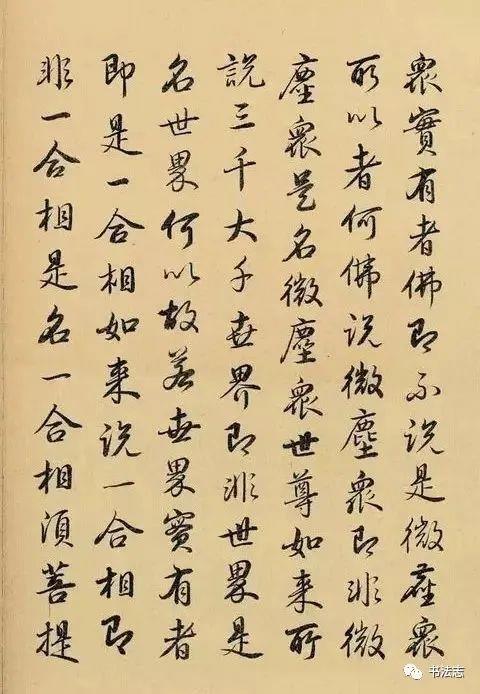 衆實有者佛即不說是微塵衆
所以者何佛說微塵衆即非微
塵衆是名微塵衆世尊如来所
說三千大千世界即非世界是
名世界何以故若世界實有者
即是一合相如来說一合相即
非一合相是名一合相須菩提
书法志